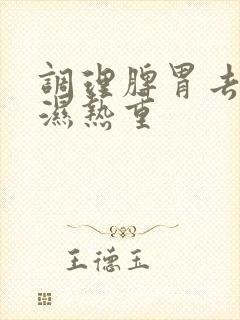 調理脾胃去
濕熱重
王德玉